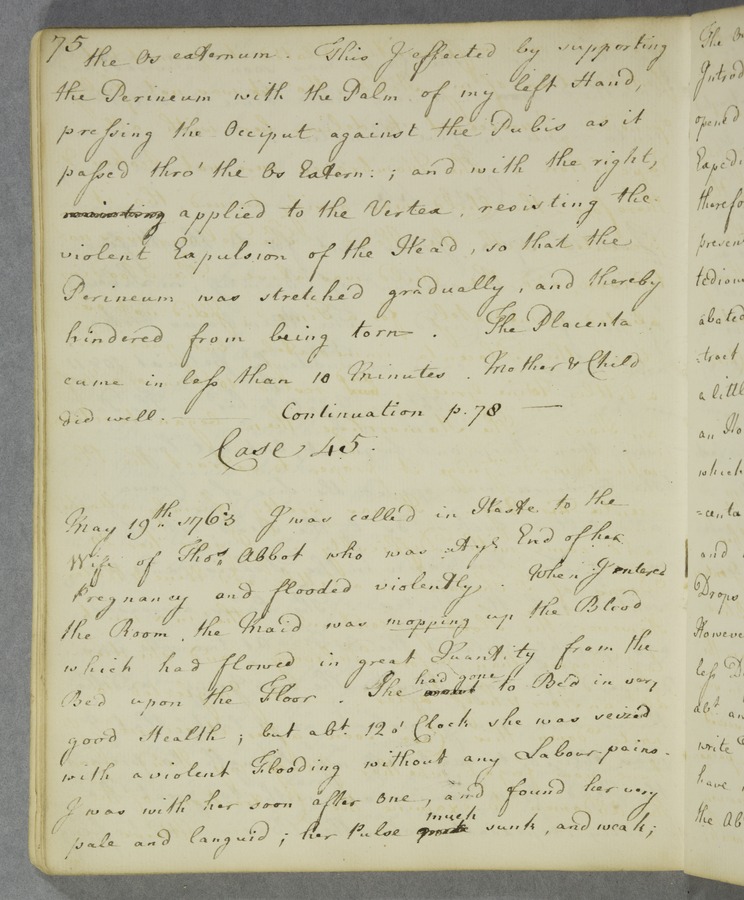 75
the Os externum. This I effected by supporting
the Perineum with the Palm of my left Hand,
pressing the Occiput against the Pubis as it
passed thro' the Os Extern:; and with the right,
applied to the Vertex, resisting the
violent Expulsion of the Head, so that the
Perineum was stretched gradually, and thereby
hindered from being torn. The Placenta
came in less than 10 Minutes. Mother & Child
did well. — Continuation p. 78 —
Case 45.
May 19th. 1763 I was called in Haste to the
Wife of Thos. Abbot who was at ye End of her
Pregnancy and flooded violently. When I entered
the Room, the Maid was mopping up the Blood
which had flowed in great Quantity from the
Bed upon the Floor. She had gone to Bed in very
good Health; but abt. 12 o' Clock she was seized
with a violent Flooding without any Labour-pains.
I was with her soon after one, and found her very
pale and languid; her Pulse much sunk, and weak;
The
Introd
opened
Exped
therefo
presen
tedious
abated
:tract
a littl
an Ho
which
=centa
and
Drops
Howeve
less D
abt. an
write
have
the Ab